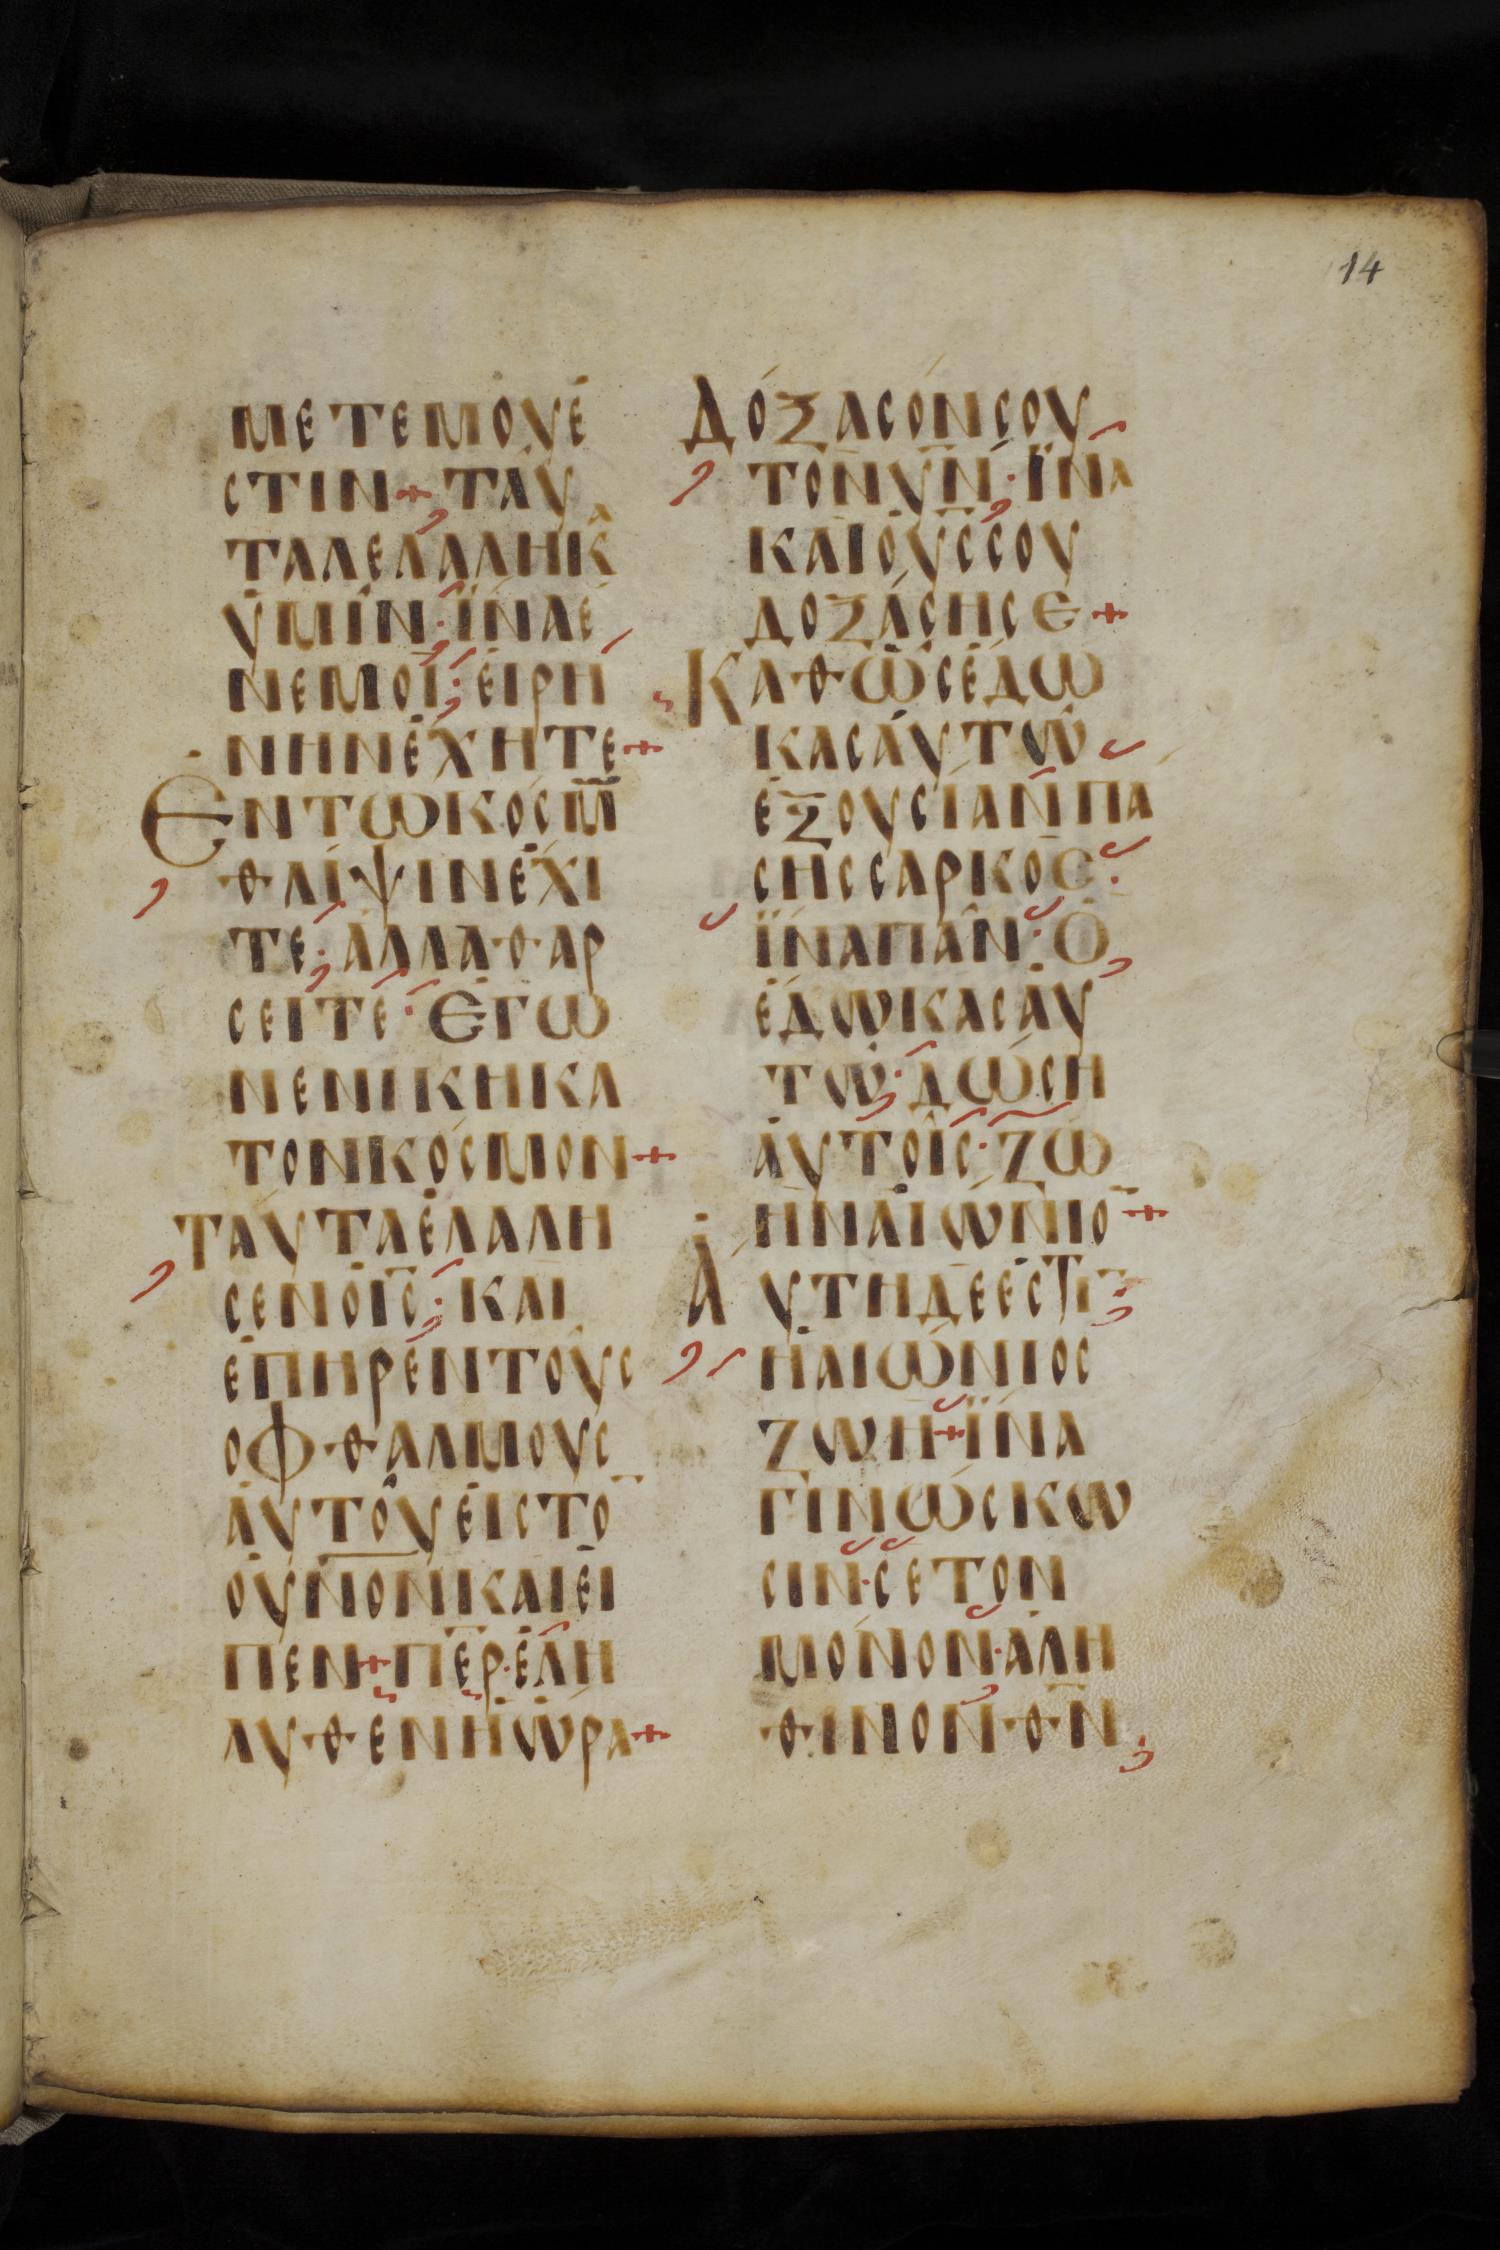 14
ΜΕΤΕΜΟΥΈ
CΤΙΝ + ΤΑΥ
ΤΑΛΕΛΆΛΗΚᾹ
ὙΜΙ͂Ν · ἽΝΑΕ
ΝΕΜΟΪ́ · ΕἸΡΉ
ΝΗΝΈΧΗΤΕ +
ἘΝΤΩΚΌCΜ̅
ΘΛΙ͂ΨΙΝΈΧΙ
ΤΕ · ἈΛΛΑΘΑΡ
CΕΙΤΕ · ἘΓΩ
ΝΕΝΙΚΗΚΑ
ΤΟΝΚΌCΜΟΝ +
ΤΑΥΤΑἘΛΑΛΗ
CΕΝΟΙ̅C · ΚΑΙ
ἘΠΗ͂ΡΕΝΤΟΥC
ΟΦΘΑΛΜΟΥC
ἈΥΤΟΥΕἸCΤΟ̅
ΟΥ̓ΝΟΝΚΑΙΕἸ
ΠΕΝ + ΠΕ̅Ρ · ἘΛΗ
ΛΥΘΕΝἩὭΡΑ +
ΔΌΞΑCΌΝCΟΥ
ΤΟΝΥ̅Ν̅ · ἽΝΑ
ΚΑΙὉΥ̅C̅CΟΥ
ΔΟΞΆCΗCΕ +
ΚΑΘὨCἘΔΩ
ΚΑCἈΥΤΩ
ἘΞΟΥCΙΑΝΠΆ
CΗCCΑΡΚΌC ·
ἽΝΑΠΑ͂Ν · Ὁ
ἘΔΩΚΑCἈΥ
ΤΩ · ΔΏCΗ
ἈΥΤΟΙ͂C · ΖΩ
ῊΝΑἸΏΝΙΟ̅ +
ἈΥΤΗΔΕἘCΤΙ̅ ·
ἩΑΙΏΝΙΟC
ΖΩΗ + ἽΝΑ
ΓΙΝΏCΚΩ
CΙΝ · CΕΤΟΝ
ΜΌΝΟΝ · ἈΛΗ
ΘΙΝΟΝΘ̅Ν̅ ·